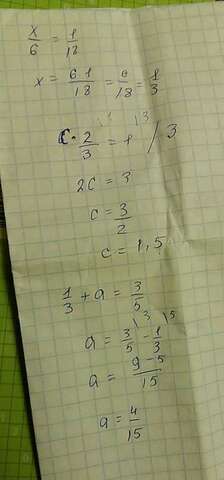 x/6 = 1/18
x = 6·1/18 = 6/18 = 1/3
c · 2/3 = 1 / 3
2c = 3
c = 3/2
c = 1,5
1/3 + a = 3/5
a = 3/5 - 1/3
a = 9-5/15
a = 4/15